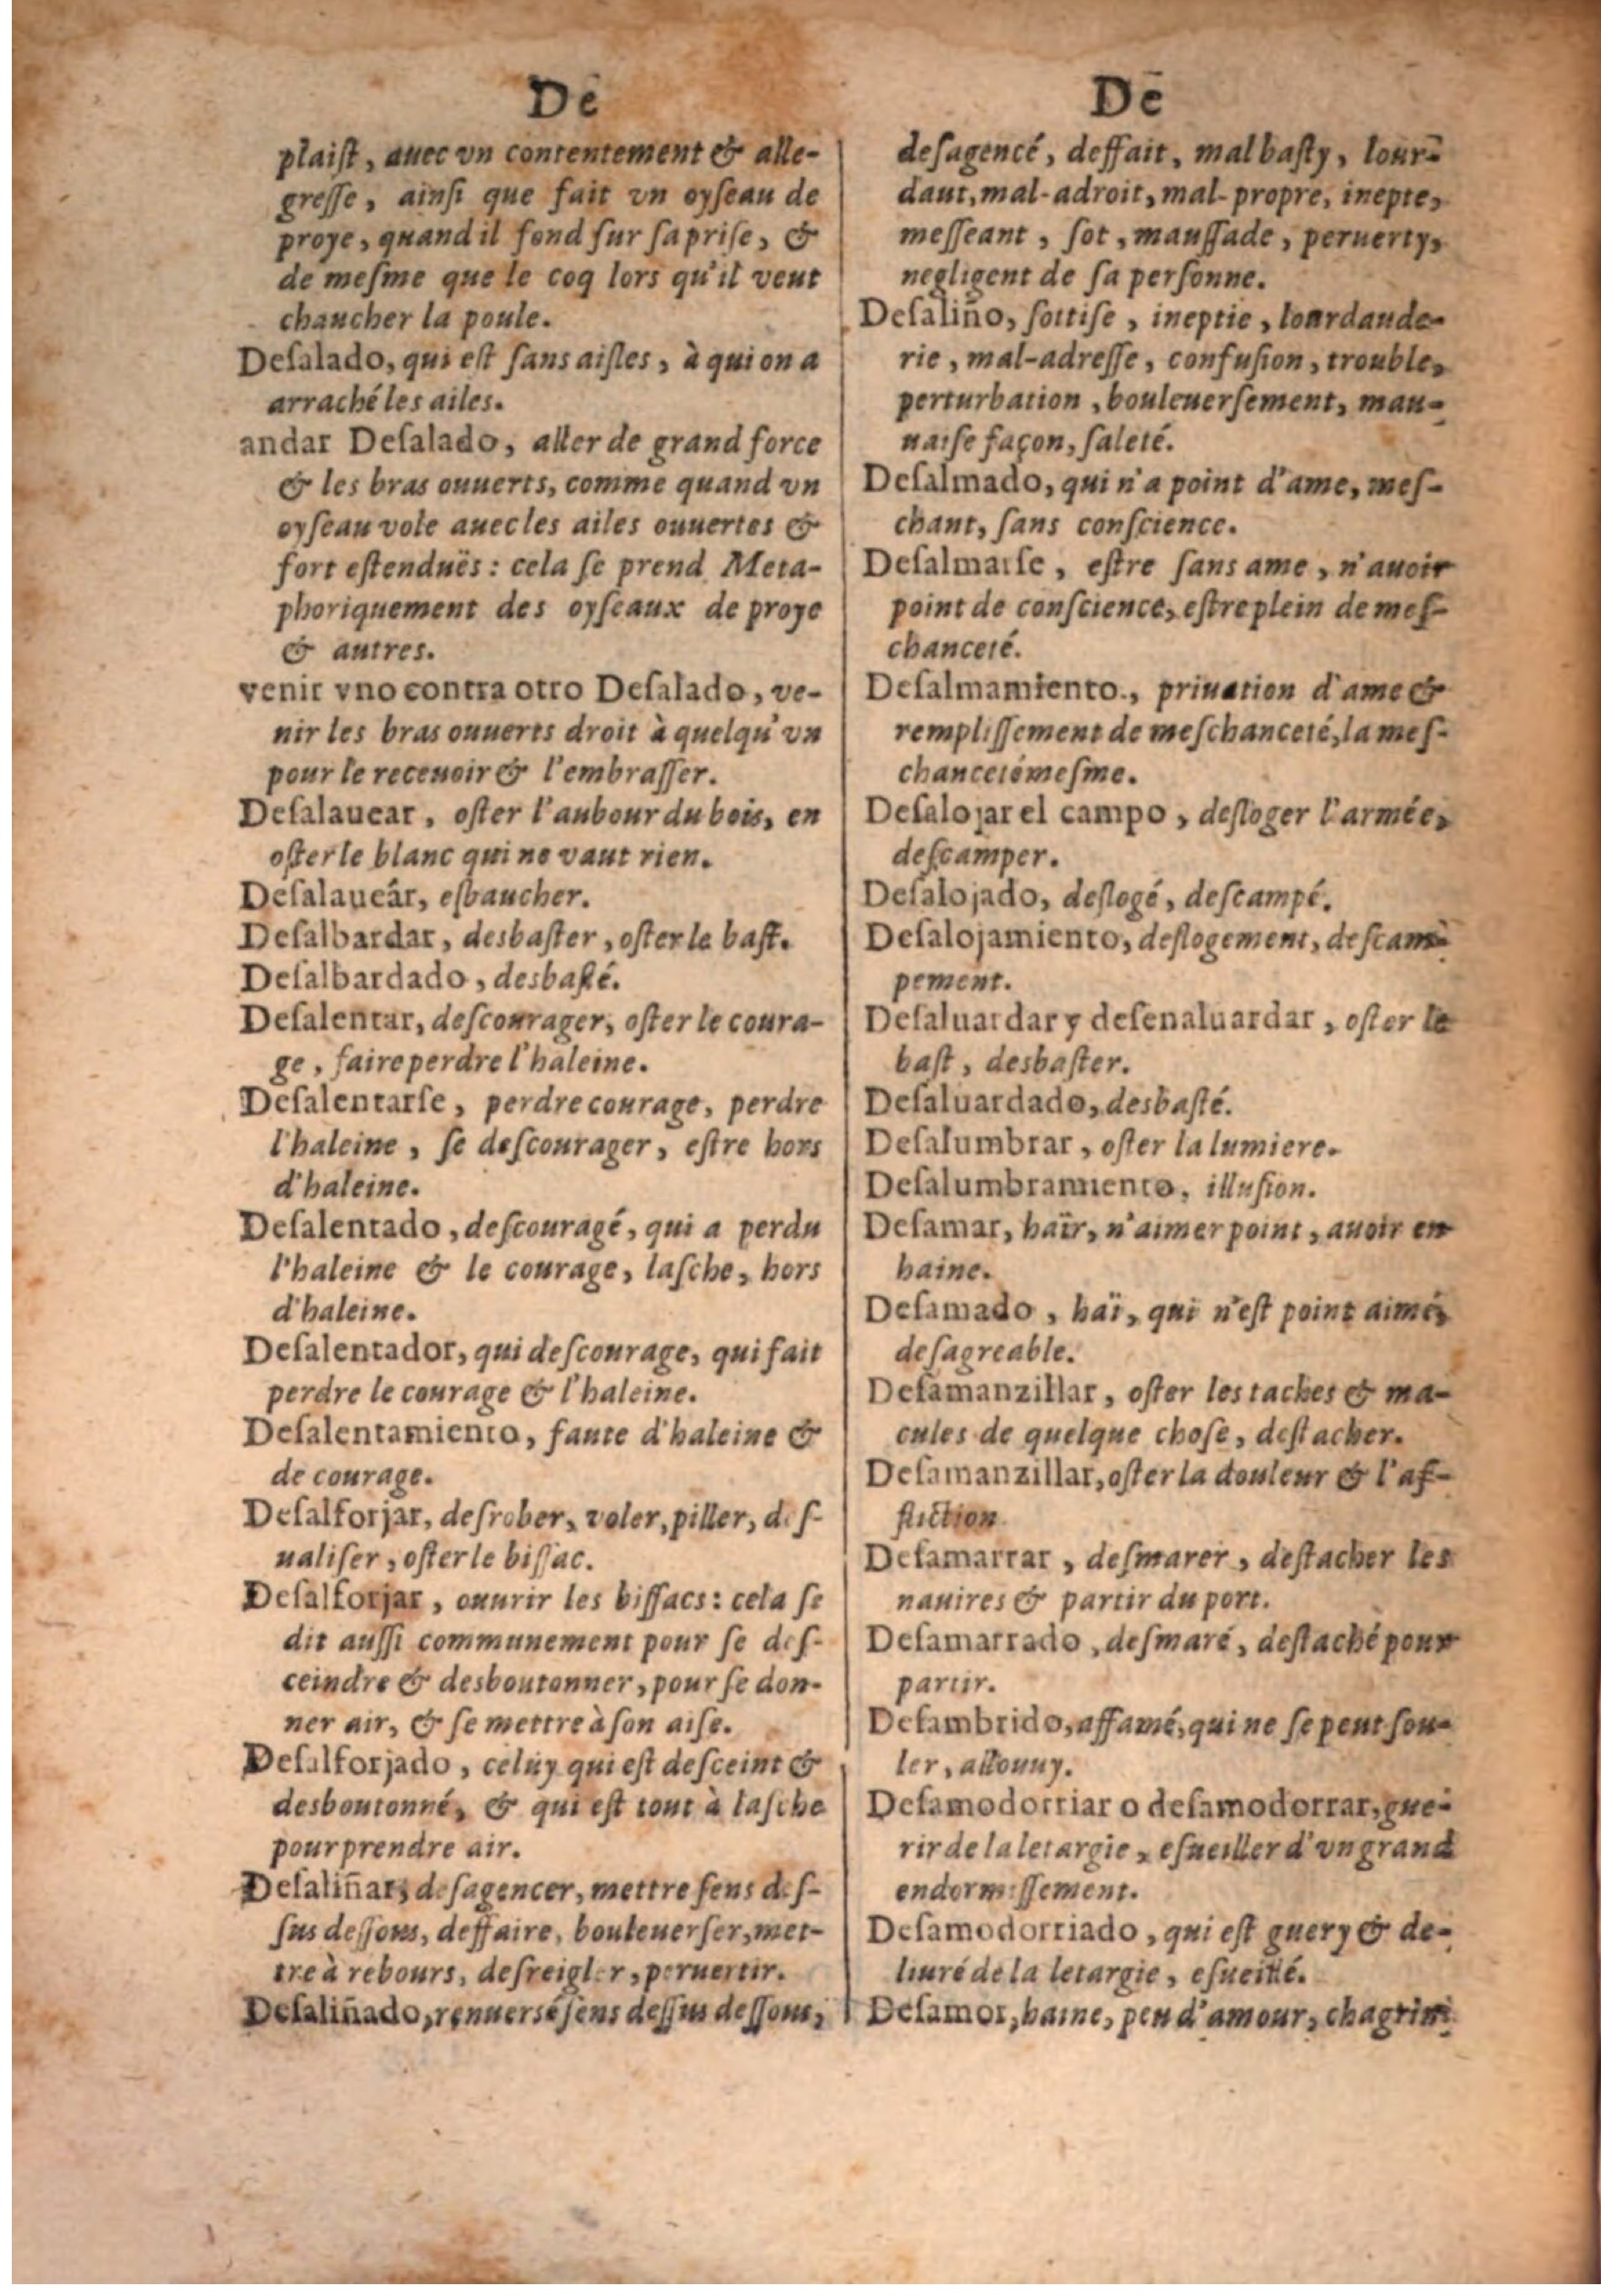 De
plaiſt, auec vn contentement & alle-
greſſe, ainſi que fait vn oyſeau de
proye, quand il fond ſur ſa priſe, &
de meſme que le coq lors qu'il veut
chaucher la poule.
Deſalado, qui eſt ſans aiſles, à qui on a
arraché les ailes.
andar Deſalado, aller de grand force
& les bras ouuerts, comme quand vn
oyſeau vole auec les ailes ouuertes &
fort eſtenduës: cela ſe prend Meta-
phoriquement des oyſeaux de proye
& autres.
venir vno contra otro Deſalado, ve-
nir les bras ouuerts droit à quelqu'vn
pour le receuoir & l'embraſſer.
Deſalauear, oſter l'aubour du bois, en
oſter le blanc qui ne vaut rien.
Deſalaueár, esbaucher.
Deſalbardar, desbaſter, oſter le baſt.
Deſalbardado, desbaſté.
Deſalentar, deſcourager, oſter le coura-
ge, faire perdre l'haleine.
Deſalentarſe, perdre courage, perdre
l'haleine, ſe deſcourager, eſtre hors
d'haleine.
Deſalentado, deſcouragé, qui a perdu
l'haleine & le courage, laſche, hors
d'haleine.
Deſalentador, qui deſcourage, qui fait
perdre le courage & l'haleine.
Deſalentamiento, faute d'haleine &
de courage.
Deſalforjar, deſrober, voler, piller, deſ-
ualiſer, oſter le biſſac.
Deſalforjar, ouurir les biſſacs: cela ſe
dit auſſi communement pour ſe deſ-
ceindre & desboutonner, pour ſe don-
ner air, & ſe mettre à ſon aiſe.
Deſalforjado, celuy qui eſt deſceint &
desboutonné, & qui eſt tout à laſche
pour prendre air.
Deſaliñar, deſagencer, mettre ſens deſ-
ſus deſſous, deffaire, bouleuerſer, met-
tre à rebours, deſreigler, peruertir.
Deſaliñado, renuersé ſens deſſus deſſous,
De
deſagencé, deffait, mal baſty, lour-
daut, mal-adroit, mal-propre, inepte,
meſſeant, ſot, mauſſade, peruerty,
negligent de ſa perſonne.
Deſaliño, ſottiſe, ineptie, lourdaude-
rie, mal-adreſſe, confuſion, trouble,
perturbation, bouleuerſement, mau-
uaiſe façon, ſaleté.
Deſalmado, qui n'a point d'ame, meſ-
chant, ſans conſcience.
Deſalmarſe, eſtre ſans ame, n'auoir
point de conſcience, eſtre plein de meſ-
chanceté.
Deſalmamiento, priuation d'ame &
rempliſſement de meſchanceté, la meſ-
chanceté meſme.
Deſalojar el campo, desloger l'armée,
deſcamper.
Deſalojado, deslogé, deſcampé.
Deſalojamiento, deslogement, deſcam-
pement.
Deſaluardar y deſenaluardar, oſter le
baſt, desbaſter.
Deſaluardado, desbaſté.
Deſalumbrar, oſter la lumiere.
Deſalumbramiento, illuſion.
Deſamar, haïr, n'aimer point, auoir en
haine.
Deſamado, haï, qui n'eſt point aimé,
deſagreable.
Deſamanzillar, oſter les taches & ma-
cules de quelque choſe, deſtacher.
Deſamanzillar, oſter la douleur & l'af-
fliction.
Deſamarrar, deſmarer, deſtacher les
nauires & partir du port.
Deſamarrado, deſmaré, deſtaché pour
partir.
Deſambrido, affamé, qui ne ſe peut ſou-
ler, allouuy.
Deſamodorriar o deſamodorrar, gue-
rir de la letargie, eſueiller d'vn grand
endormiſſement.
Deſamodorriado, qui eſt guery & de-
liuré de la letargie, eſueillé.
Deſamor, haine, peu d'amour, chagrin